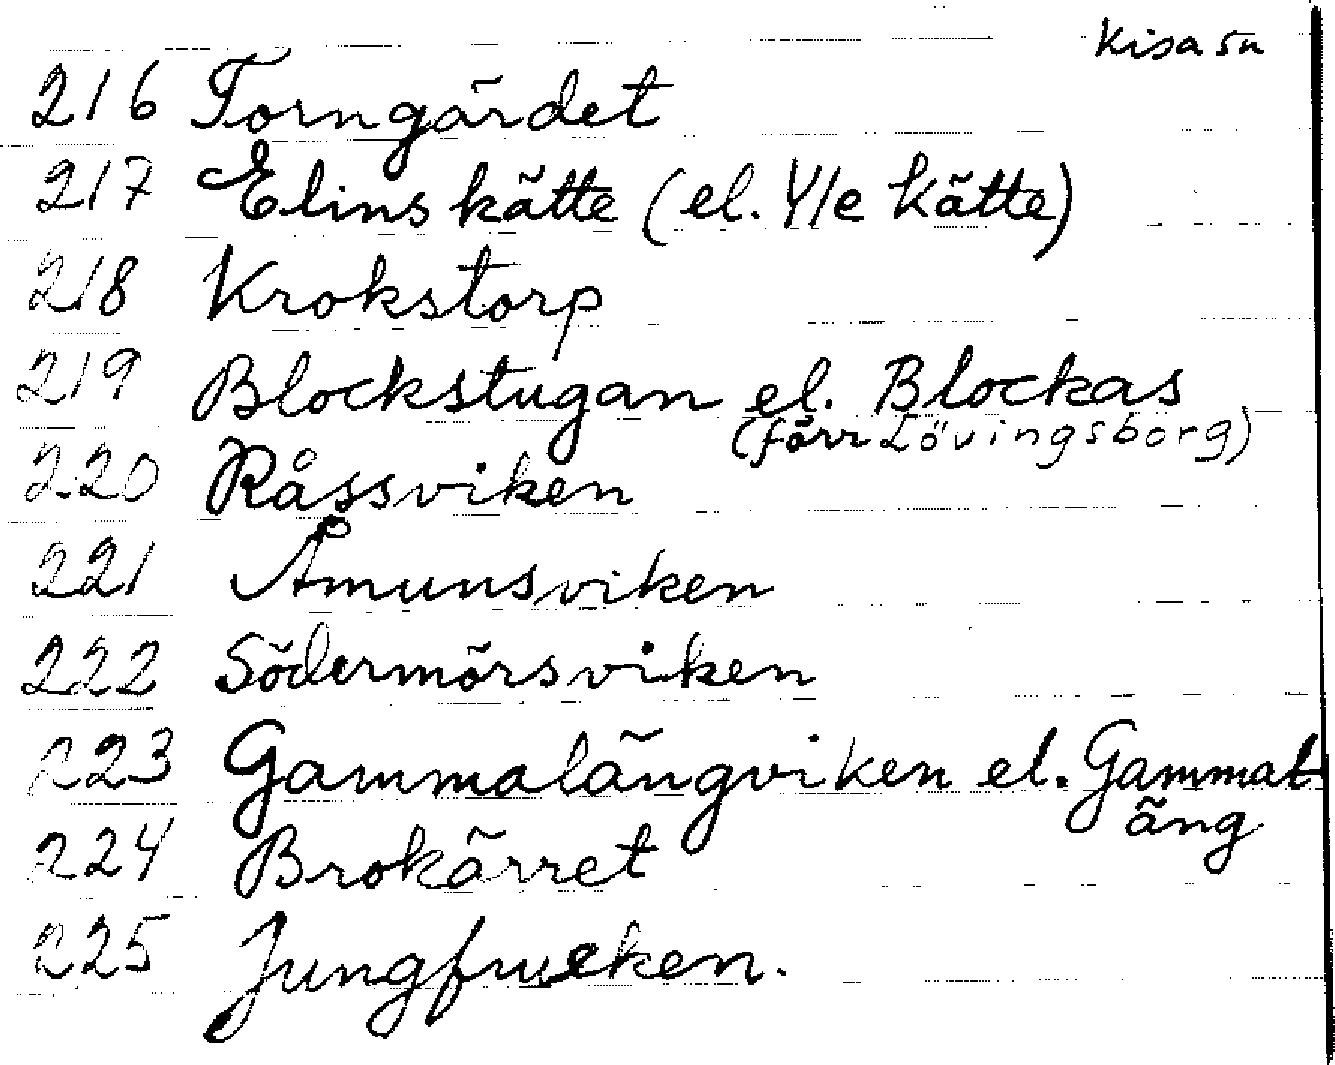 Kisa sn
216 Torngärdet
217 Elins kätte (el. Ylle kätte)
218 Krokstorp
219 Blockstugan el. Blockas
(förr Lövingsborg)
220 Råssviken
221 Åmunsviken
222 Södermörsviken
223 Gammalängviken el. Gammal-
äng
224 Brokärret
225 Jungfrueken.